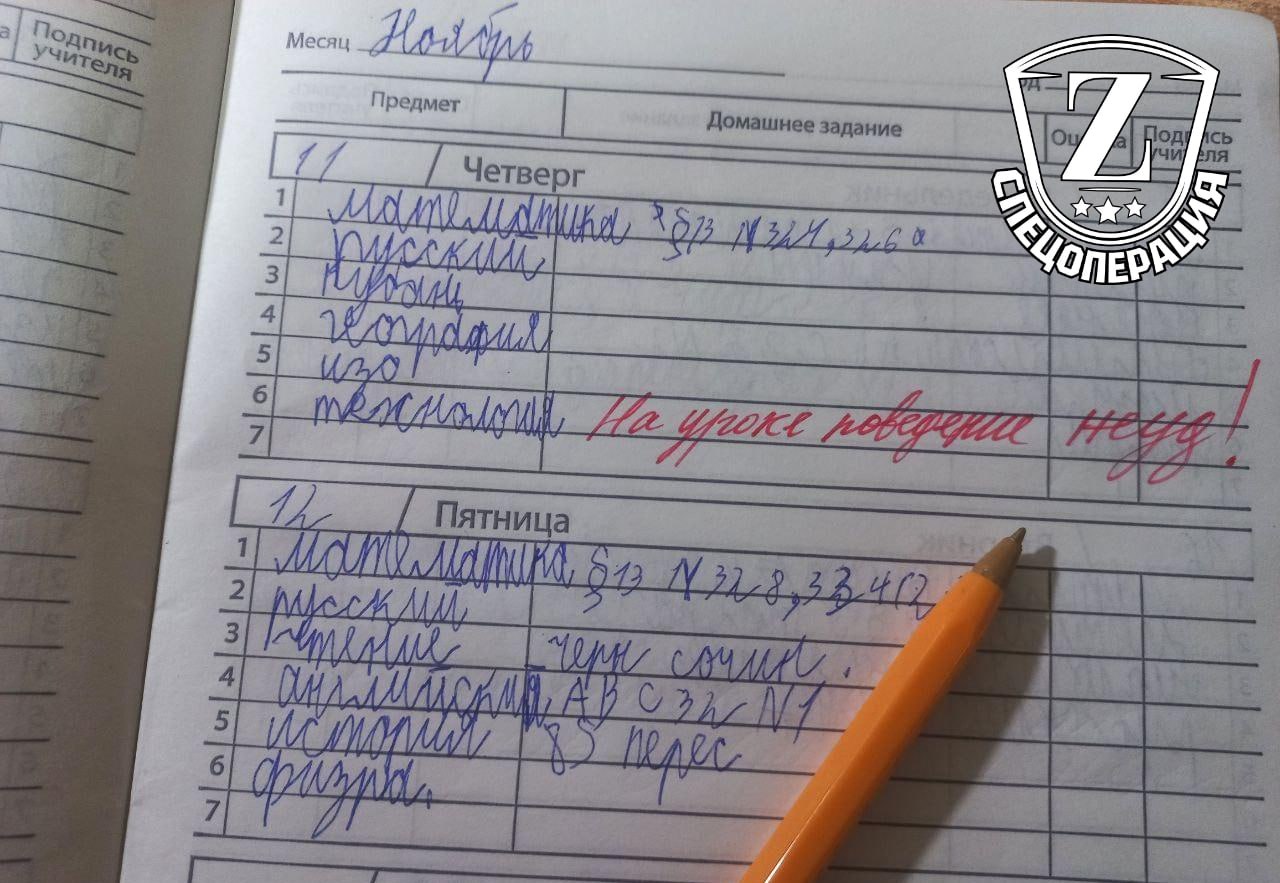 а Подпись учителя
Месяц Ноябрь
Предмет Домашнее задание Оценка Подпись учителя
11 Четверг
1 математика § 13 N 324, 326 а
2 русский
3 кубан
4 география
5 изо
6 технология На уроке поведение неуд!
7
12 Пятница
1 математика § 13 N 328, 334 (2
2 русский
3 чтение черн сочин.
4 английский АВ С 32 N1
5 история §5 перес
6 физра.
7
Z
СПЕЦОПЕРАЦИЯ